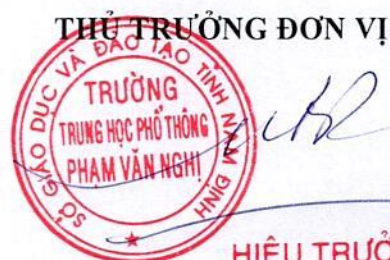 THỦ TRƯỞNG ĐƠN VỊ
SỞ GIÁO DỤC VÀ ĐÀO TẠO TỈNH NAM ĐỊNH
TRƯỜNG
TRUNG HỌC PHỔ THÔNG
PHẠM VĂN NGHỊ
HIỆU TRƯỞ